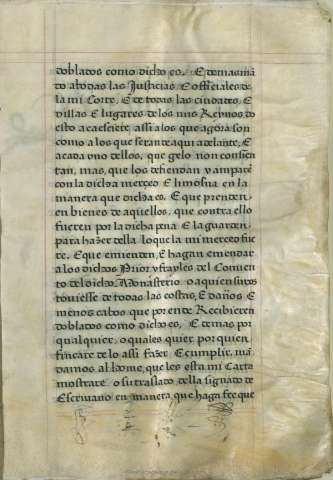 doblados como dicho es. E demas mã
do atodas las Justicias, E officiales de
la mi Corte, E de todas las ciudades, E
villas E lugares de los mis Reynos, do
esto acaesciere assi alos que agora son
como alos que seran de aqui adelante, E
acada vno dellos, que gelo non consien
tan, mas, que los defiendan y amparẽ
con la dicha merced E limosna en la
manera que dicha es. E que prenden
en bienes de aquellos, que contra ello
fueren por la dicha pena E la guarden,
para hazer della lo que la mi merced fue
re. E que emienden, E hagan emendar
a los dichos Prior y frayles del Conuen
to del dicho Monasterio o aquien su voz
touiesse de todas las costas, E daños E
menos cabos que por ende Recibieren
doblados como dicho es, E demas por
qualquier, o quales quier por quien
fincare de lo assi fazer E cumplir, mã
damos al home, que les esta mi Carta
mostrare o su traslado della signado de
Escriuano en manera, que haga fee que